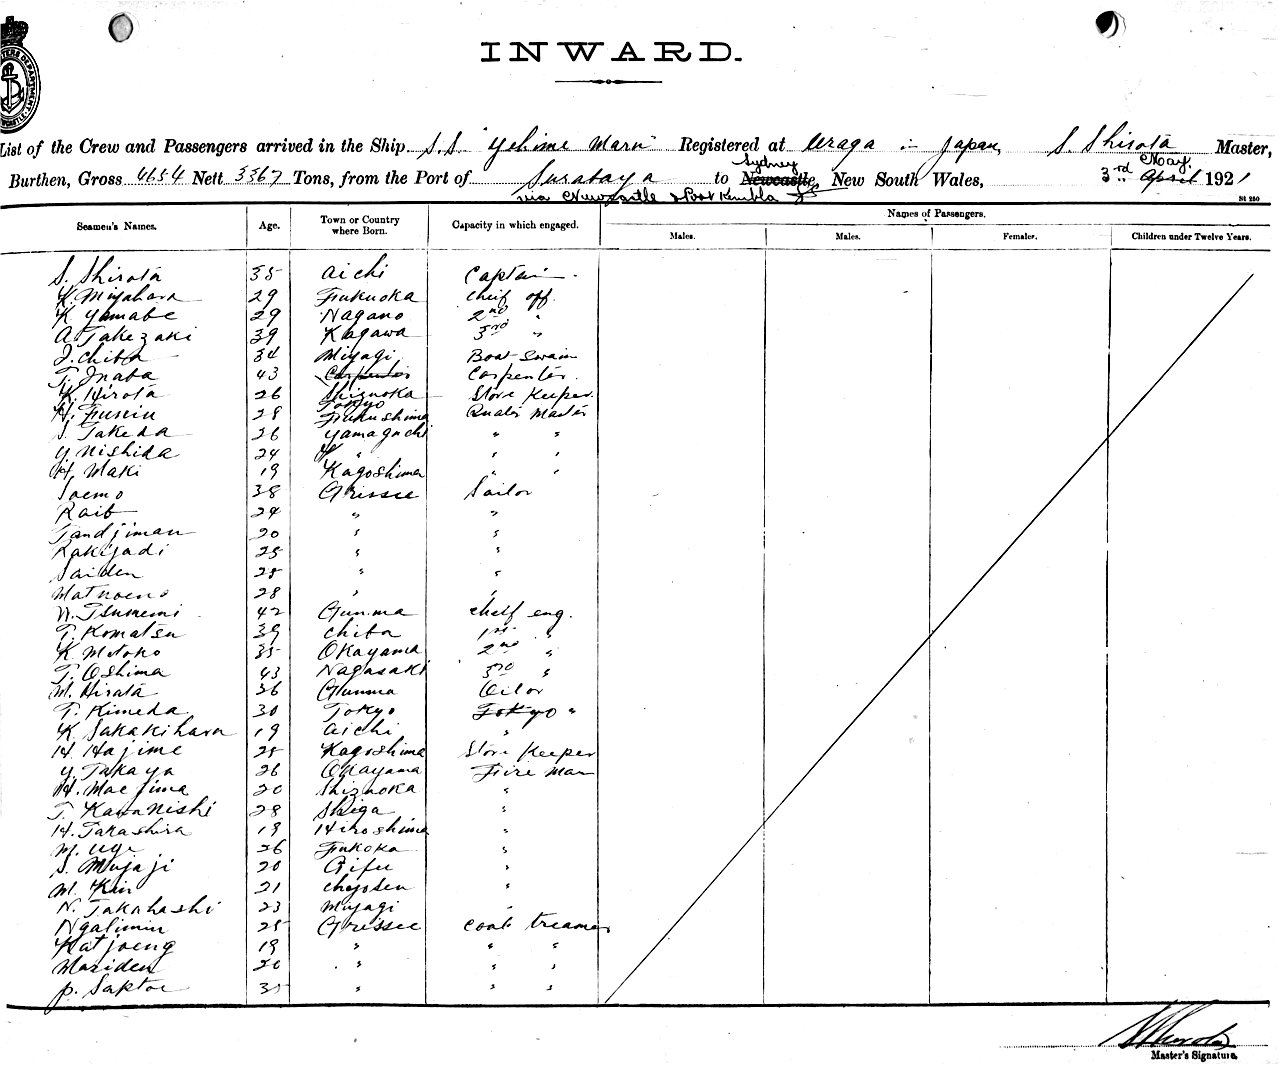 INWARD.
List of the Crew and Passengers arrived in the Ship S.S. "Yehime Maru" Registered at Uraga in Japan, S. Shirota Master,
Burthen, Gross 4654 Nett 3367 Tons, from the Port of Surabaya to Newcastle, Sydney New South Wales, 3rd April May 1921
via Newcastle & Port Kembla
St 250
Seamen's Names. Age. Town or Country where Born. Capacity in which engaged. Names of Passengers.
Males. Males. Females. Children under Twelve Years.
S. Shirota 35 Aichi Captain.
K. Miyahara 29 Fukuoka Cheif off.
K. Yamabe 29 Nagano 2nd "
A. Takezaki 39 Kagawa 3rd "
J. Chiba 34 Miyagi Boat-swain
T. Inaba 43 Carpenter Carpenter.
K. Hirota 26 Shizuoka Store Keeper.
Tokyo
H. 28 Fukushima Quater Master
S. Takeda 26 Yamaguchi " "
Y. Nishida 24 " " "
H. Maki 19 Kagoshima " "
Soemo 38 Grissee Sailor
Kaib 24 " "
Tandjiman 20 " "
Rakijadi 25 " "
Saiden 25 " "
Matnoeno 28 " "
N. Tsunemi 42 Gunma cheif eng.
T. Komatsu 39 Chiba 1st "
K. Motoko 35 Okayama 2nd "
T. Oshima 43 Nagasaki 3rd "
M. Hirata 36 Gunma Oilor
T. Kimeda 30 Tokyo Tokyo "
K. Sakakihara 19 Aichi "
H. Hajime 25 Kagoshima Store Keeper
Y. Takaya 26 Okayama Fire man
H. Maejima 20 Shizuoka "
T. Kawanishi 28 Shiga "
H. Takashira 19 Hiroshima "
M. 26 Fukoka "
S. Mujaji 20 Gifu "
M. Kin 21 Chojosen "
N. Takahashi 23 Miyagi "
Ngalimin 25 Grissee Coal treamer
Katjoeng 19 " " "
Mariden 20 " " "
P. Saptoe 35 " " "
S. Shirota
Master's Signature.